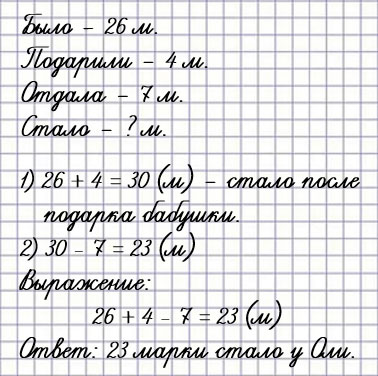 Было – 26 м.
Подарили – 4 м.
Отдала – 7 м.
Стало – ? м.
1) 26 + 4 = 30 (м) – стало после
подарка бабушки.
2) 30 – 7 = 23 (м)
Выражение:
26 + 4 – 7 = 23 (м)
Ответ: 23 марки стало у Оли.